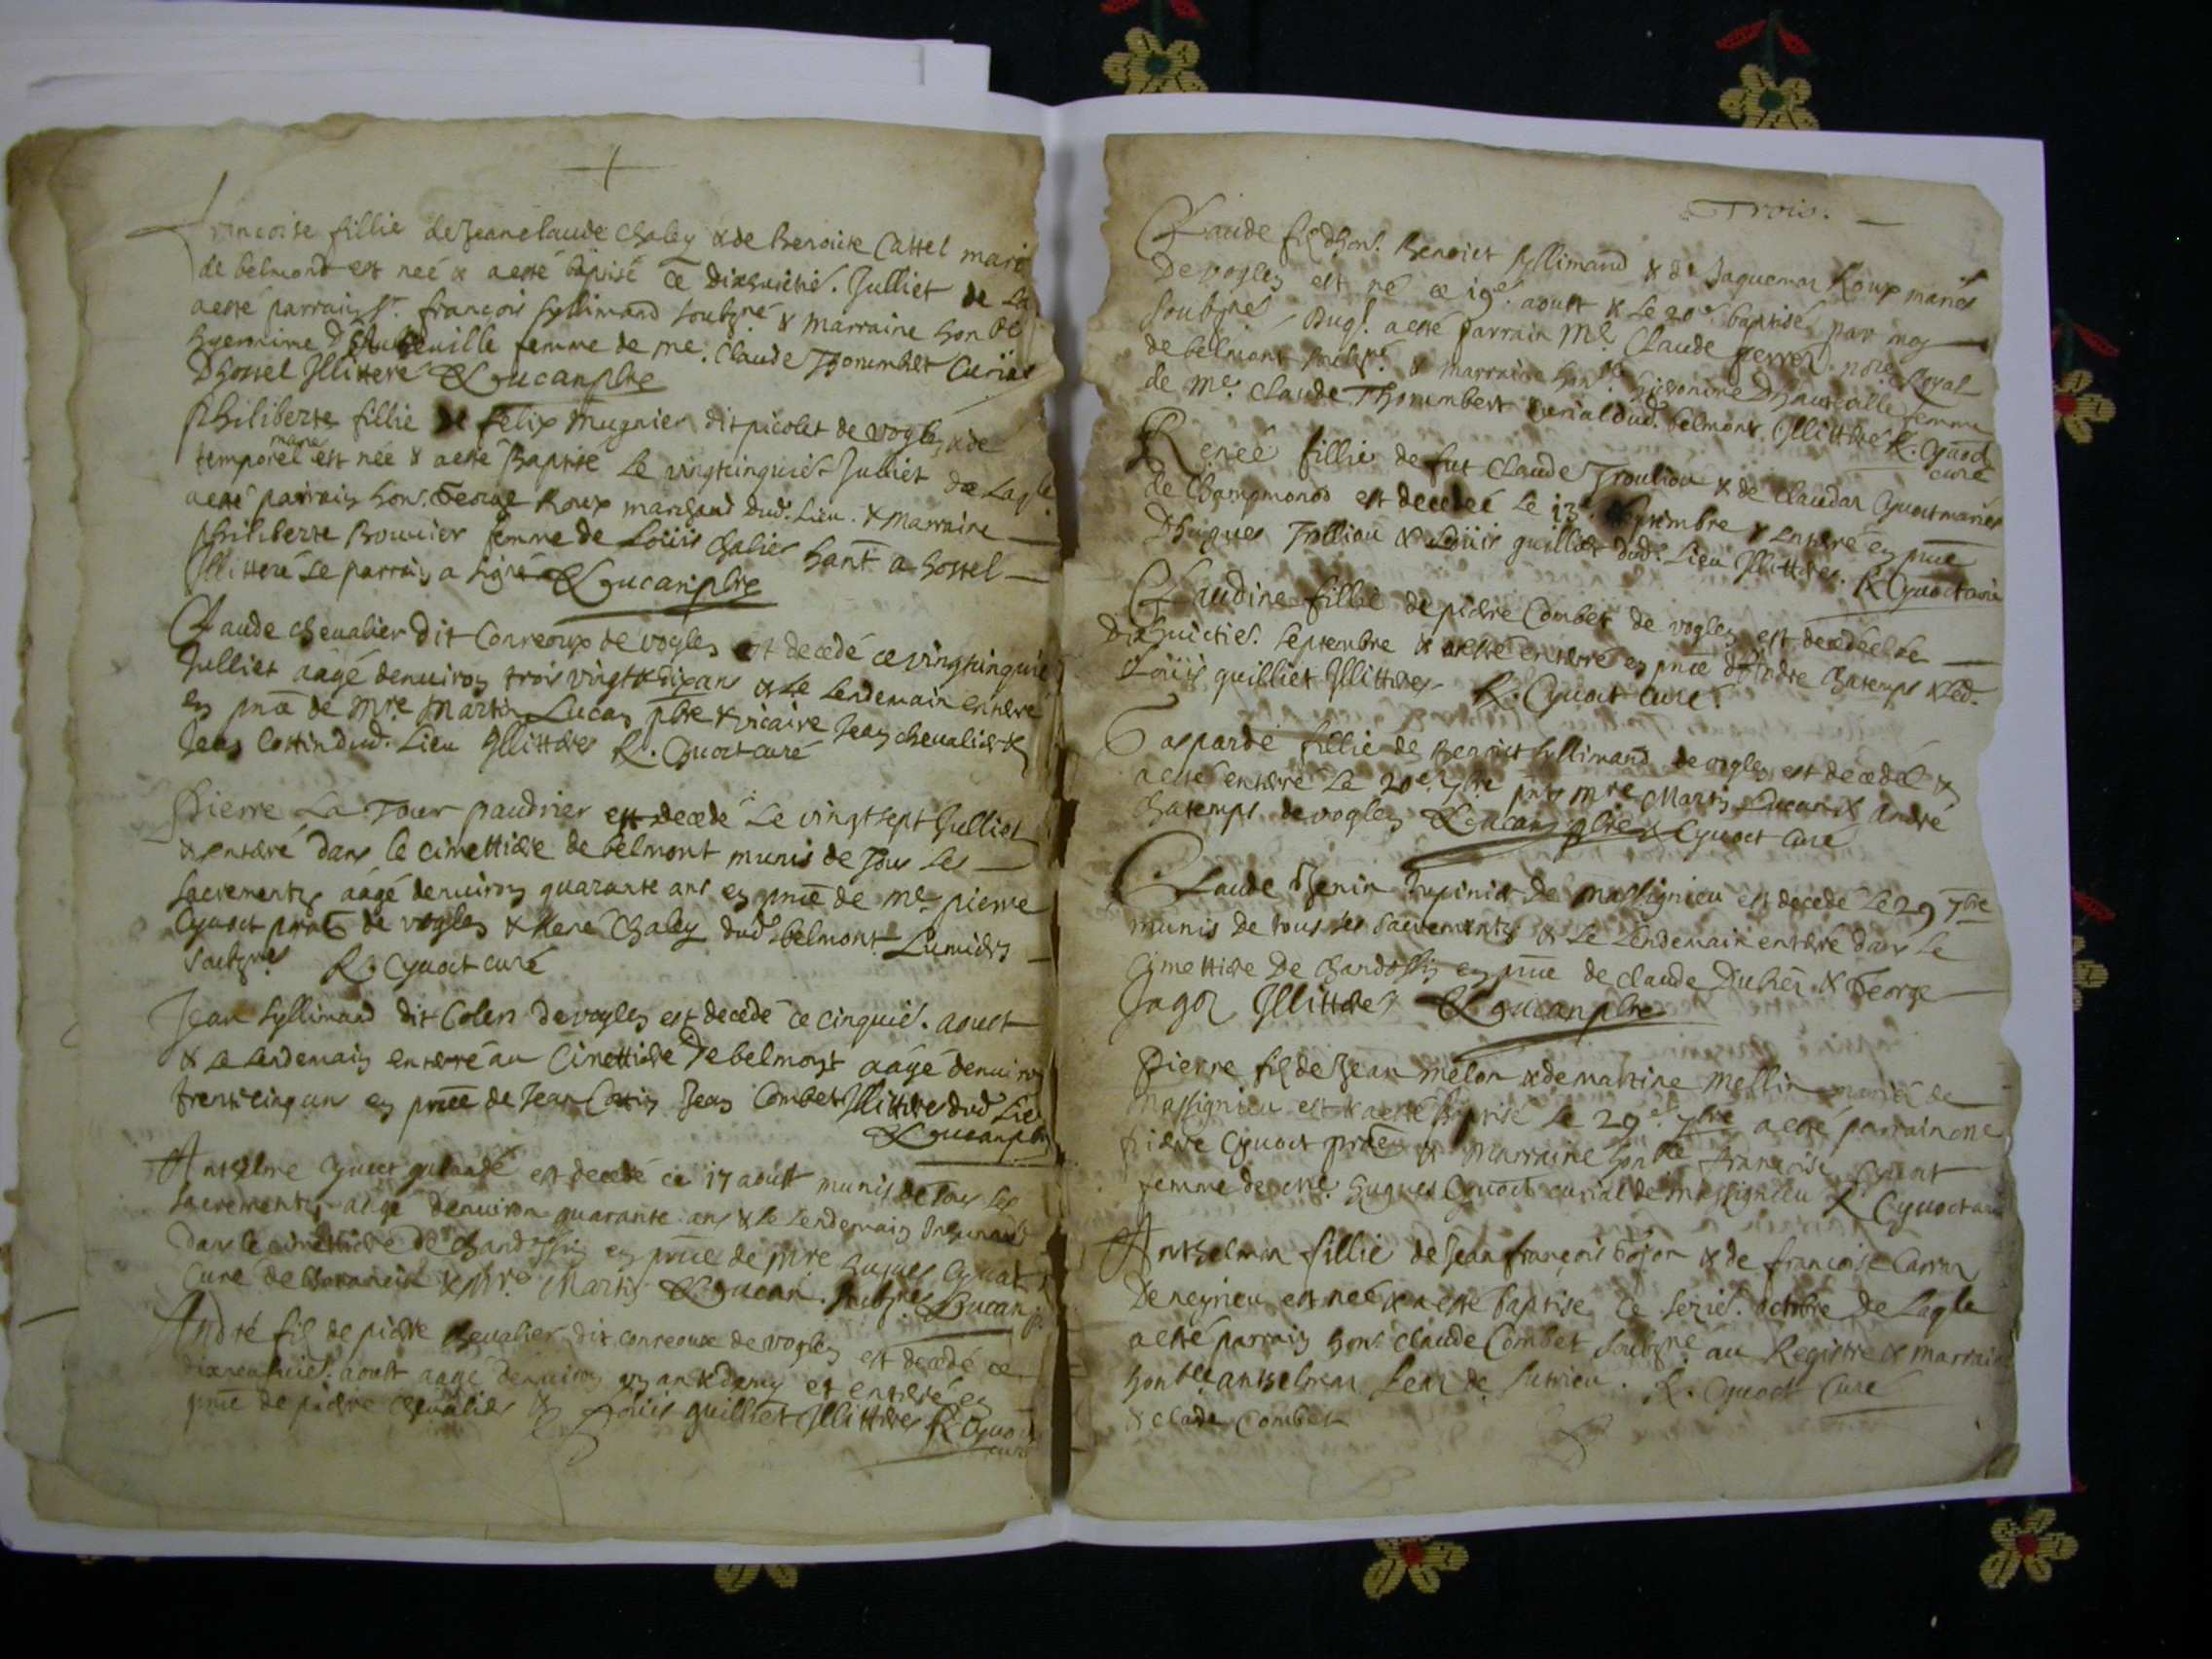 +
Francoise fillie de Jeanclaude Chaley & de Benoite Cattel marié
de belmond est neé & a esté baptisé ce dixhuictie. Julliet de La
a esté parrain Sr. françois Syllimand soubzné & marraine honble
femme de me. Claude Thorumbert Curial
Dhostel Jllitteré Lucan pbre
Philiberte fillie de felix Mugnier dit picolet de vogley & de
marie
temporel est née & a esté Baptise Le vingtcinquie Julliet de Lagle
a esté parrain hon. George Roux marchand dud. Lieu. & Marraine
philiberte Bouuier femme de Loüis Chalier hant a hostel
Jllitteré Le parrain a signé Lucan pbre
Claude cheualier dit Conreoux de vogley est decedé ce vingtcinquie
Julliet aagé denuiron trois vingt & dix ans & Le Lendemain enterré
en pnce de Mre Martin Lucan pbre & vicaire Jean cheualier &
Jean Cottin dud. Lieu Jllitterés R. Cyuoct curé
Pierre La Tour paudrier est decedé Le vingtsept Julliet
& enterré dans le cimettiere de belmont munis de Tous Les
sacrements aagé denuiron quarante ans en pnce de Me pierre
Cyuoct de vogley & René Chaley dud. belmont
soubznes R. Cyuoct curé
Jean Syllimand dit Colen de vogley est decedé ce cinquie. aoust
& Le Lendemain enterré au Cimettiere De belmont aagé denuiron
trentecinq ans en pnce de Jean Cottin Jean Combet Jllitteré dud Lieu
Lucan pbre
Anthelme Cyuoct est decedé ce 17 aoust munis de Tous Les
sacrements aagé denuiron quarante ans & Le Lendemain Inhumé
Dans le cimettiere De Chandossin en pnce de Mre hugues Cyuoct
Curé de & Mre Martin Lucan. soubznes Lucan p
André fils de pierre cheualier dit conreoux de vogley est decedé ce
dixneufuie. aoust aagé denuiron vn an & demy et enterré en
pnce de pierre cheualier & Loüis guilliet Jllitterés R Cyuoct
curé
Trois.
Claude fils dhon. Benoict Syllimand & de Jaquemaz Roup mariés
De vogley est né ce 19e. aoust & Le 20e baptisé par moy
soubzné Dugl. a esté parrain Me Claude perret note Royal
de belmont soubzné & marraine honble hieronime Dhauteuille femme
de Me. Claude Thorumbert curial dud. belmont Jllitteré R. Cyuoct
curé
Reneé fillie de fut Claude Troulion & de Claudaz Cyuoct mariés
de Champmonod est decedeé Le 13e. septembre & enterré en pnce
Dhugues Trolliou & Loüis guilliet dud. Lieu Jllitterés. R Cyuoct curé
Claudine fillie de pierre Combet de vogley est decedéé Le
Dixhuictie. septembre & a esté enterré en pnce Dandre Chatemps & Led.
Loüis guilliet Jllitterés R. Cyuoct curé.
Gasparde fillie de Benoict Syllimand de vogley est decedeé &
a esté enterré Le 20e. 7bre pnts Mre Martin Lucan & André
Chatemps de vogley Lucan pbre Cyuoct curé
Claude Thenin De Massignieu est decedé Le 29 7bre
munis de tous les sacrements & Le Lendemain enterré dans Le
cimettiere De Chandossin en pnce de Claude & George
Jagoz Jllitterés Lucan pbre
Pierre fils de Jean Melon & de martine Mellin mariés de
Massignieu est & a esté baptisé Le 29e 7bre a esté parrain me
pierre Cyuoct & Marraine honble françoise Cyuoct
femme de me. hugues Cyuoct curial de massignieu R Cyuoct curé
Anthelmaz fillie de Jean françois Gojon & de francoise Carraz
De neyrieu est neé & a esté baptise Ce sezie. octobre de Lagle
a esté parrain hon. claude Combet soubzné au Registre & marraine
honble anthelmaz de sutrieu. R. Cyuoct Curé
& clade Combet